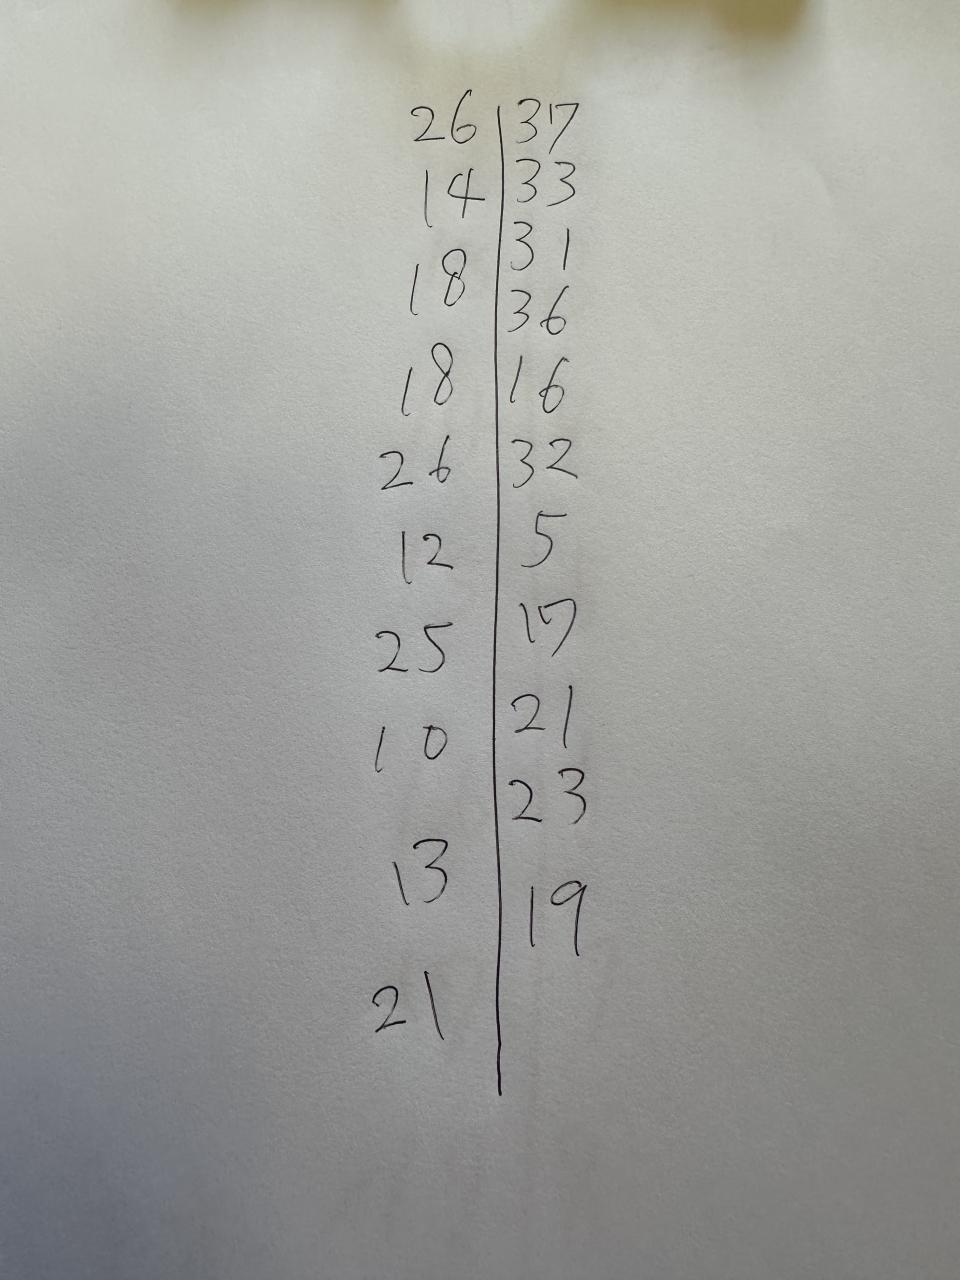 26 37
14 33
18 31
18 36
26 16
12 32
25 5
10 17
13 21
21 23
19